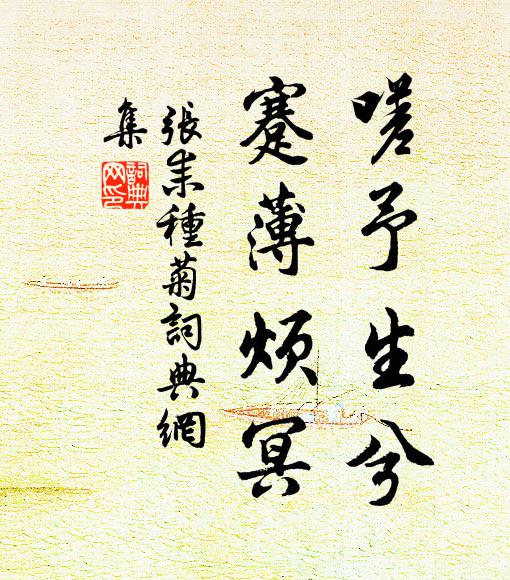 嗟予生兮
蹇薄煩冥
張耒種菊詞典網
集
詞典
网印